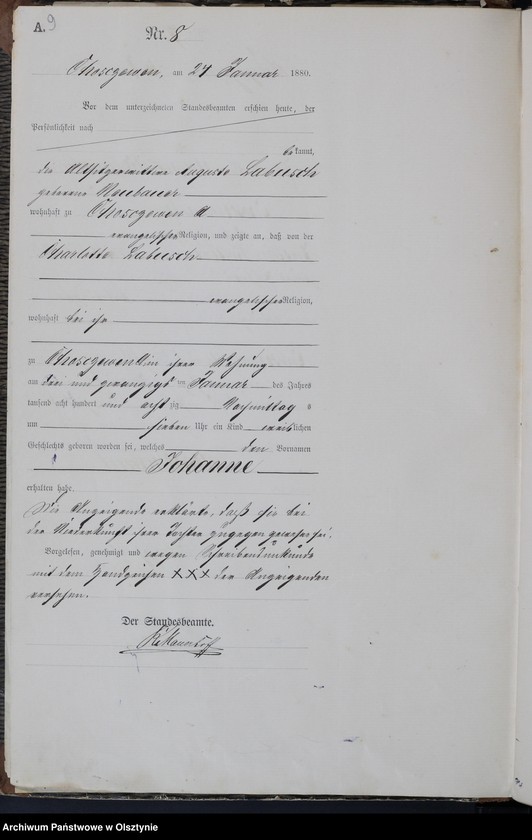 A. 9
Nr. 8
am 24 Januar 1880.
Vor dem unterzeichneten Standesbeamten erschien heute, der
Persönlichkeit nach
bekannt,
die Altsitzerwittwe Auguste Labusch
geborene Neubauer
wohnhaft zu
evangelischer Religion, und zeigte an, daß von der
Charlotte Labusch
evangelischer Religion,
wohnhaft bei ihr
zu in ihrer Wohnung
am drei und zwanzigs ten Januar des Jahres
tausend acht hundert und acht zig Nachmittag s
um sieben Uhr ein Kind weib lichen
Geschlechts geboren worden sei, welches den Vornamen
Johanne
erhalten habe.
Die Anzeigende erklärte, daß sie bei
der Niederkunft ihrer Tochter zugegen gewesen sei.
Vorgelesen, genehmigt und wegen Schreibensunkunde
mit dem Handzeichen XXX der Anzeigenden
versehen.
Der Standesbeamte.
Archiwum Państwowe w Olsztynie